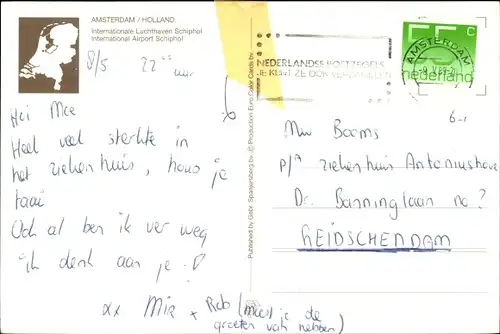 AMSTERDAM / HOLLAND
Internationale Luchthaven Schiphol
International Airport Schiphol
8/5 22 00 uur
Hoi Moe
Heel veel sterkte in
het ziekenhuis, hou je
taai
Och al ben ik ver weg
ik denk aan je
xx Mie + Rob (moest je de
groeten van hebben)
Published by Gebr. Spanjersberg bv © Production Euro Color Cards bv
NEDERLANDSE POSTZEGELS
JE KUNT ZE OOK VERZAMELEN
AMSTERDAM
55 c
nederland
Mw Booms
p/a ziekenhuis Antoniushove
Dr. Banninglaan no?
LEIDSCHENDAM